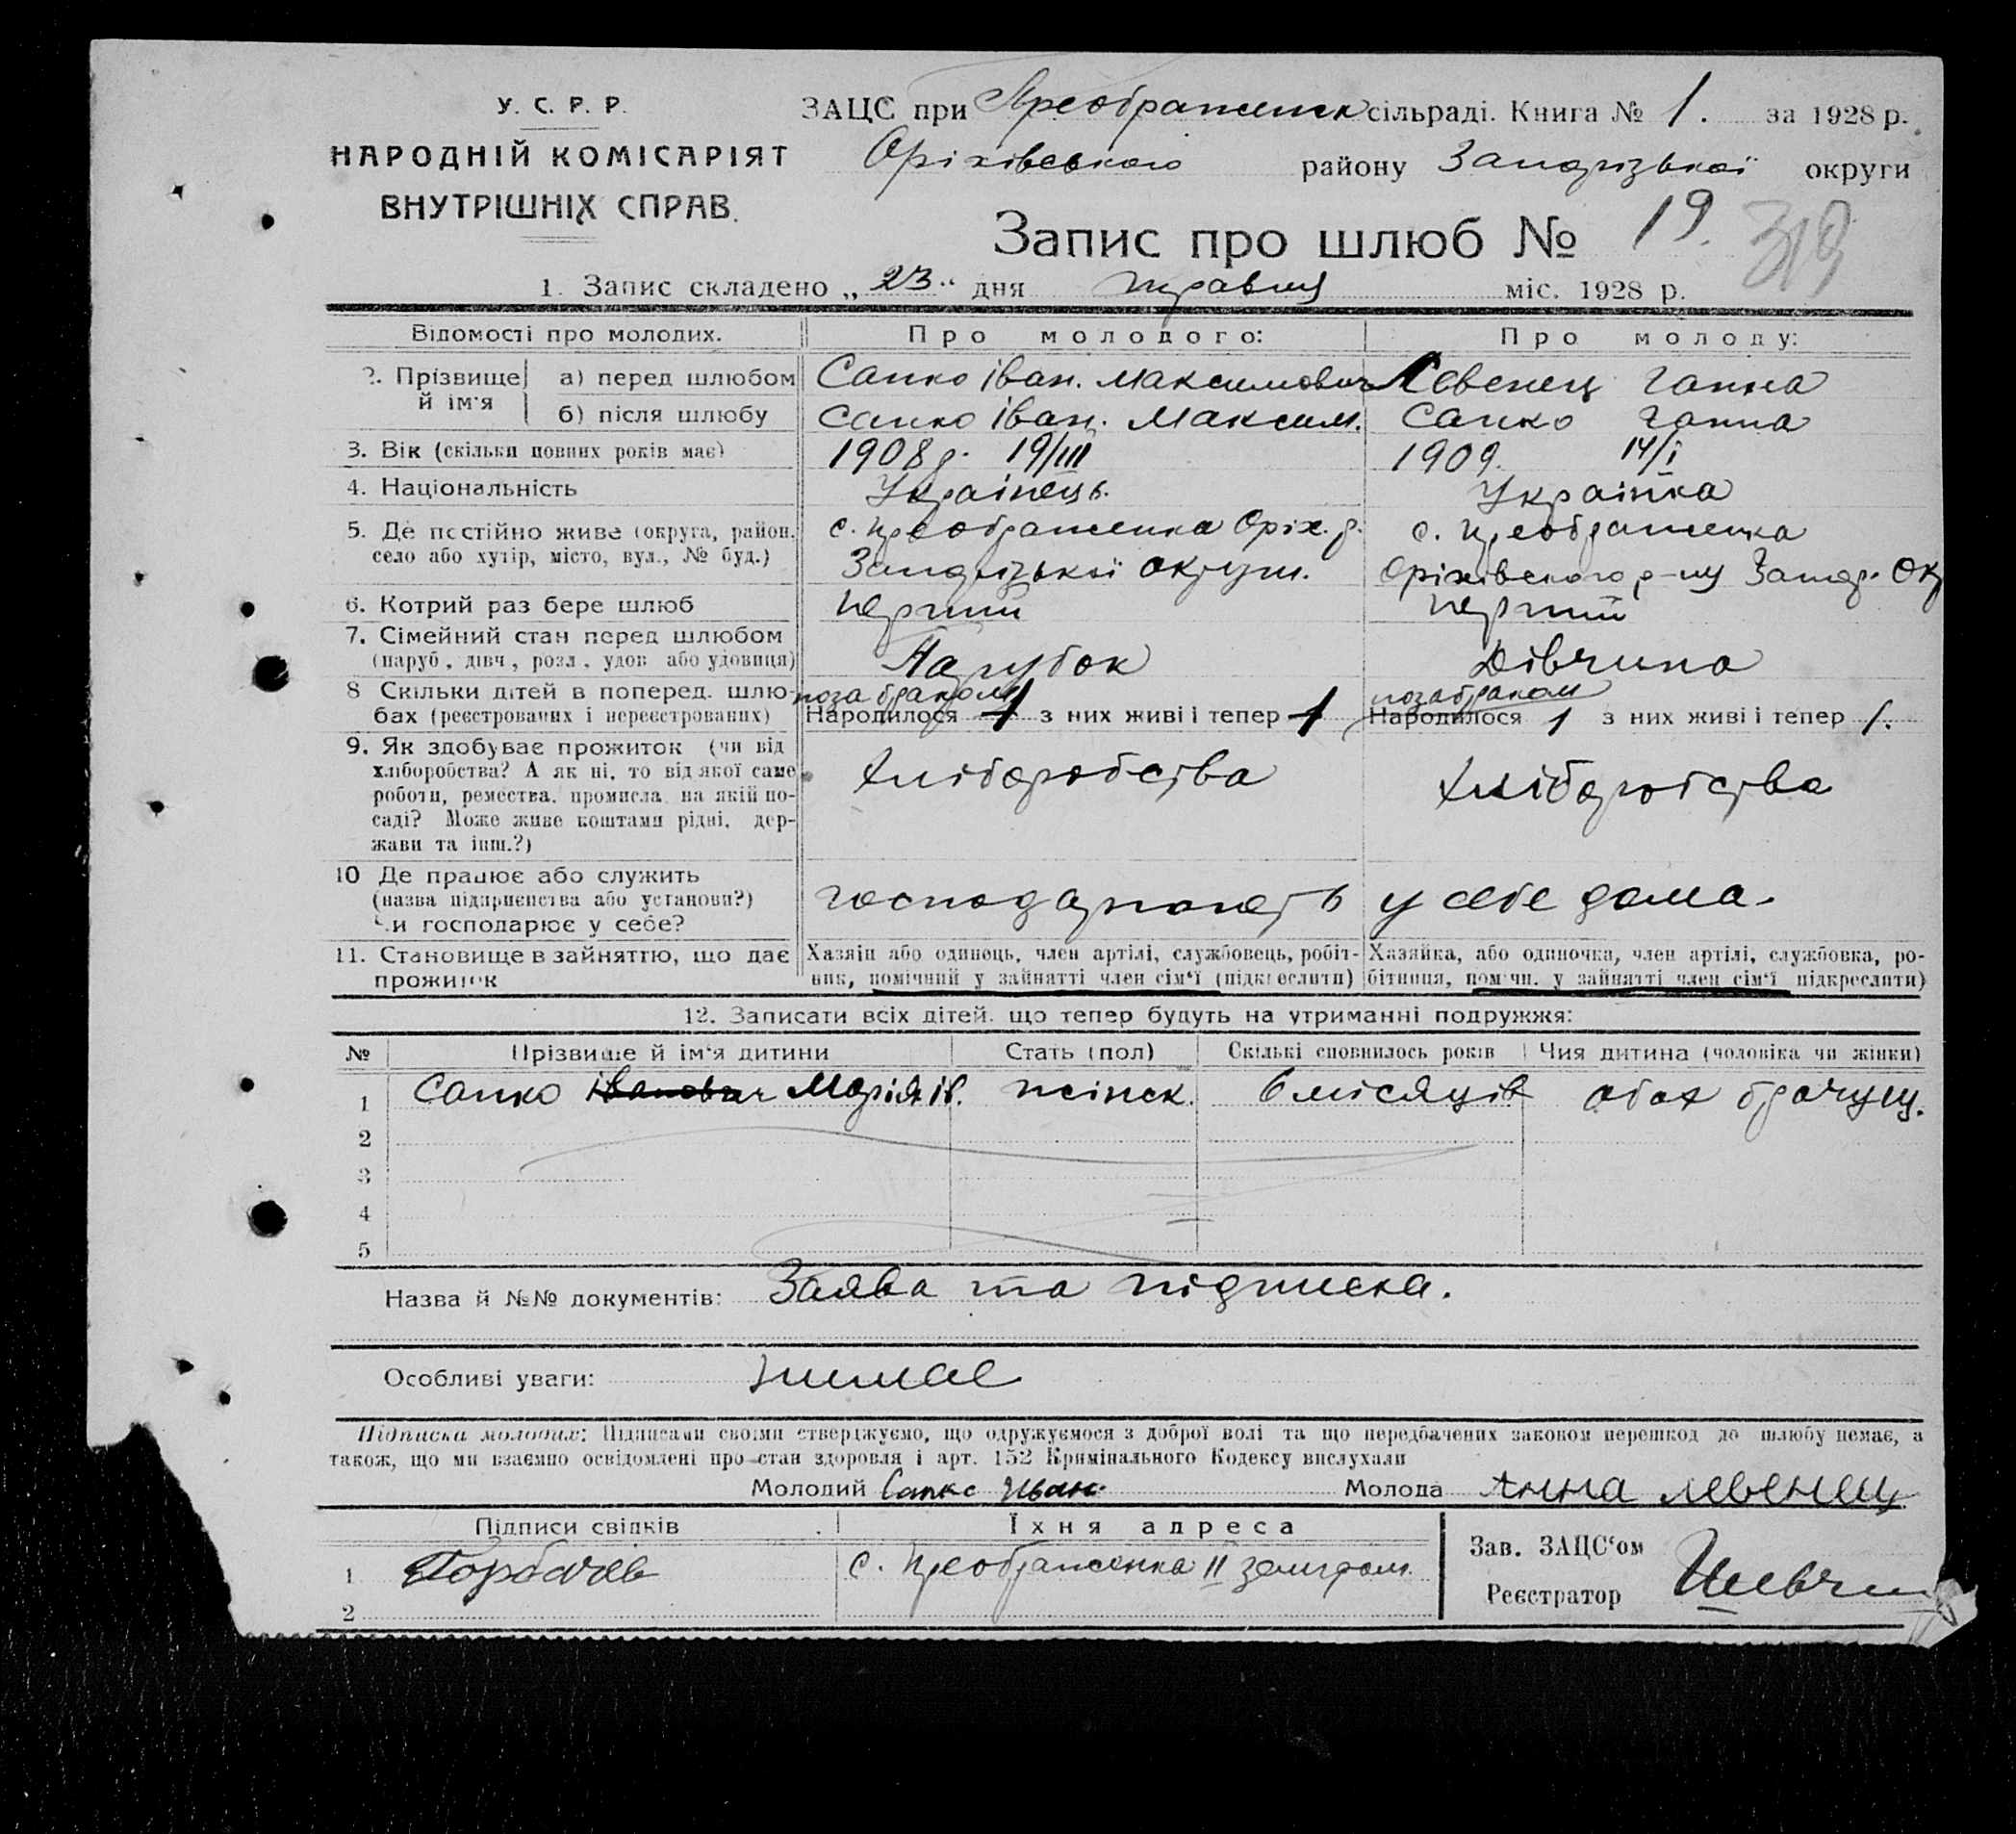 У. С. Р. Р.
НАРОДНІЙ КОМІСАРІЯТ
ВНУТРІШНІХ СПРАВ.
ЗАЦС при Преображенск сільраді. Книга № 1. за 1928 р.
Оріхівського району Запорізької округи
Запис про шлюб № 19.
319
1. Запис складено „23“ дня травця міс. 1928 р.
Відомості про молодих. Про молодого: Про молоду:
2. Прізвище й ім'я а) перед шлюбом Сапко Іван. Максимович Левенец Ганна
б) після шлюбу Сапко Іван. Максим. Сапко Ганна
3. Вік (скільки повних років має) 1908 р. 19/III 1909. 14/I
4. Національність Українець. Українка
5. Де постійно живе (округа, район, с. Преображенка Оріх. р. с. Преображенка
село або хутір, місто, вул., № буд.) Запорізької округи. Оріхівського р-ну Запор. Окр
6. Котрий раз бере шлюб перший перший
7. Сімейний стан перед шлюбом Парубок Дівчина
(паруб., дівч., розл., удов. або удовиця)
8 Скільки дітей в поперед. шлю- поза браком поза браком
бах (реєстрованих і нереєстрованих) Народилося 1 з них живі і тепер 1 Народилося 1 з них живі і тепер 1.
9. Як здобуває прожиток (чи від
хліборобства? А як ні, то від якої саме Хліборобства Хліборобства
роботи, ремества, промисла, на якій по-
саді? Може живе коштами рідні, дер-
жави та інш.?)
10 Де працює або служить
(назва підприємства або установи?) господарюють у себе дома.
Чи господарює у себе?
11. Становище в зайняттю, що дає Хазяін або одинець, член артілі, службовець, робіт- Хазяйка, або одиночка, член артілі, службовка, ро-
прожиток ник, помічний у зайнятті член сім'ї (підкреслити) бітниця, помічн. у зайнятті член сім'ї підкреслити)
12. Записати всіх дітей, що тепер будуть на утриманні подружжя:
№ Прізвище й ім'я дитини Стать (пол) Скількі сповнилось років Чия дитина (чоловіка чи жінки)
1 Сапко Іванович Марія Ів. жінск. 6 місяців обох брачущ.
2
3
4
5
Назва й №№ документів: Заява та підписка.
Особливі уваги: немає
Підписка молодих: Підписами своїми стверджуємо, що одружуємося з доброї волі та що передбачених законом перешкод до шлюбу немає, а
також, що ми взаємно освідомлені про стан здоровля і арт. 152 Кримінального Кодексу вислухали
Молодий Сапко Иван. Молода Анна Левенец
Підписи свідків Їхня адреса
Зав. ЗАЦС'ом
1 Горбачев с. Преображенка II земгром.
Реєстратор
2